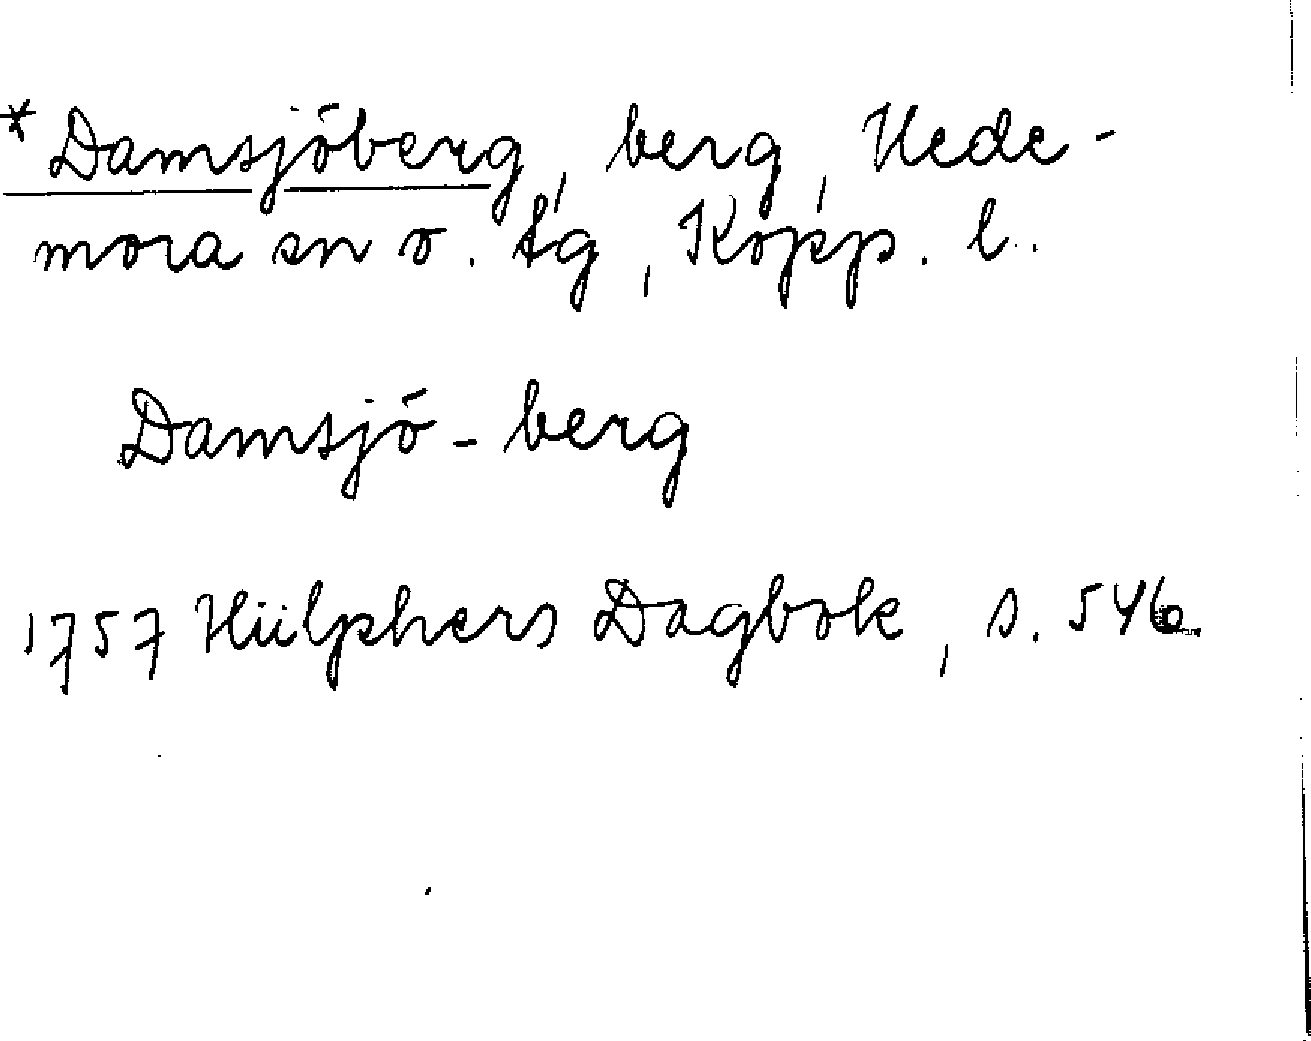 *Damsjöberg, berg, Hede-
mora sn o. tg, Kopp. l.
Damsjö-berg
1757 Hülphers Dagbok, s. 546.